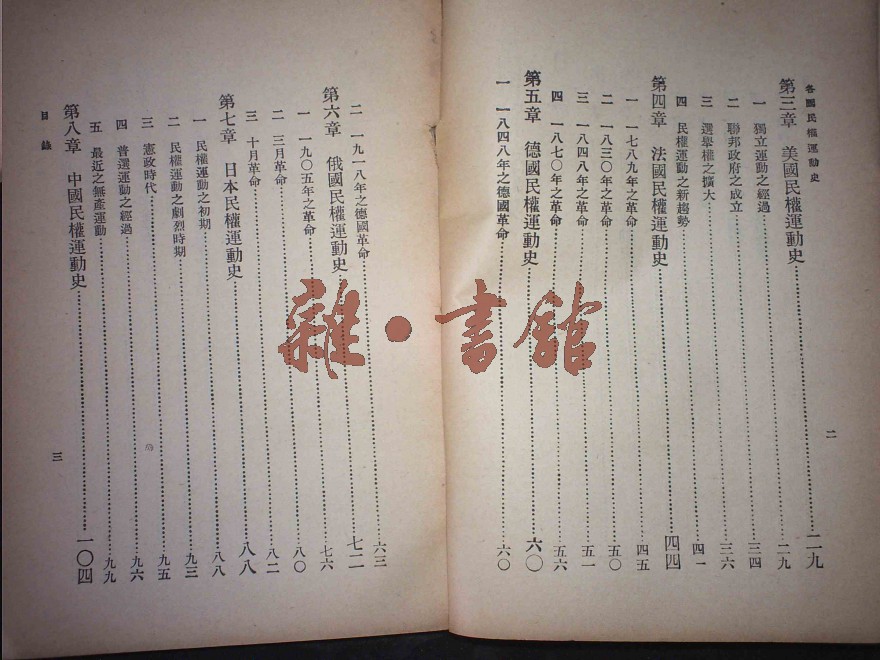 各國民權運動史
二
第三章 美國民權運動史……二九
一 獨立運動之經過……二九
二 聯邦政府之成立……三四
三 選舉權之擴大……三六
四 民權運動之新趨勢……四一
第四章 法國民權運動史……四四
一 一七八九年之革命……四五
二 一八三〇年之革命……五〇
三 一八四八年之革命……五一
四 一八七〇年之革命……五六
第五章 德國民權運動史……六〇
一 一八四八年之德國革命……六〇
二 一九一八年之德國革命……六三
第六章 俄國民權運動史……七二
一 一九〇五年之革命……七六
二 三月革命……八〇
三 十月革命……八二
第七章 日本民權運動史……八八
一 民權運動之初期……八八
二 民權運動之劇烈時期……九三
三 憲政時代……九五
四 普選運動之經過……九六
五 最近之無產運動……九九
第八章 中國民權運動史……一〇四
目錄
三
雜·書館